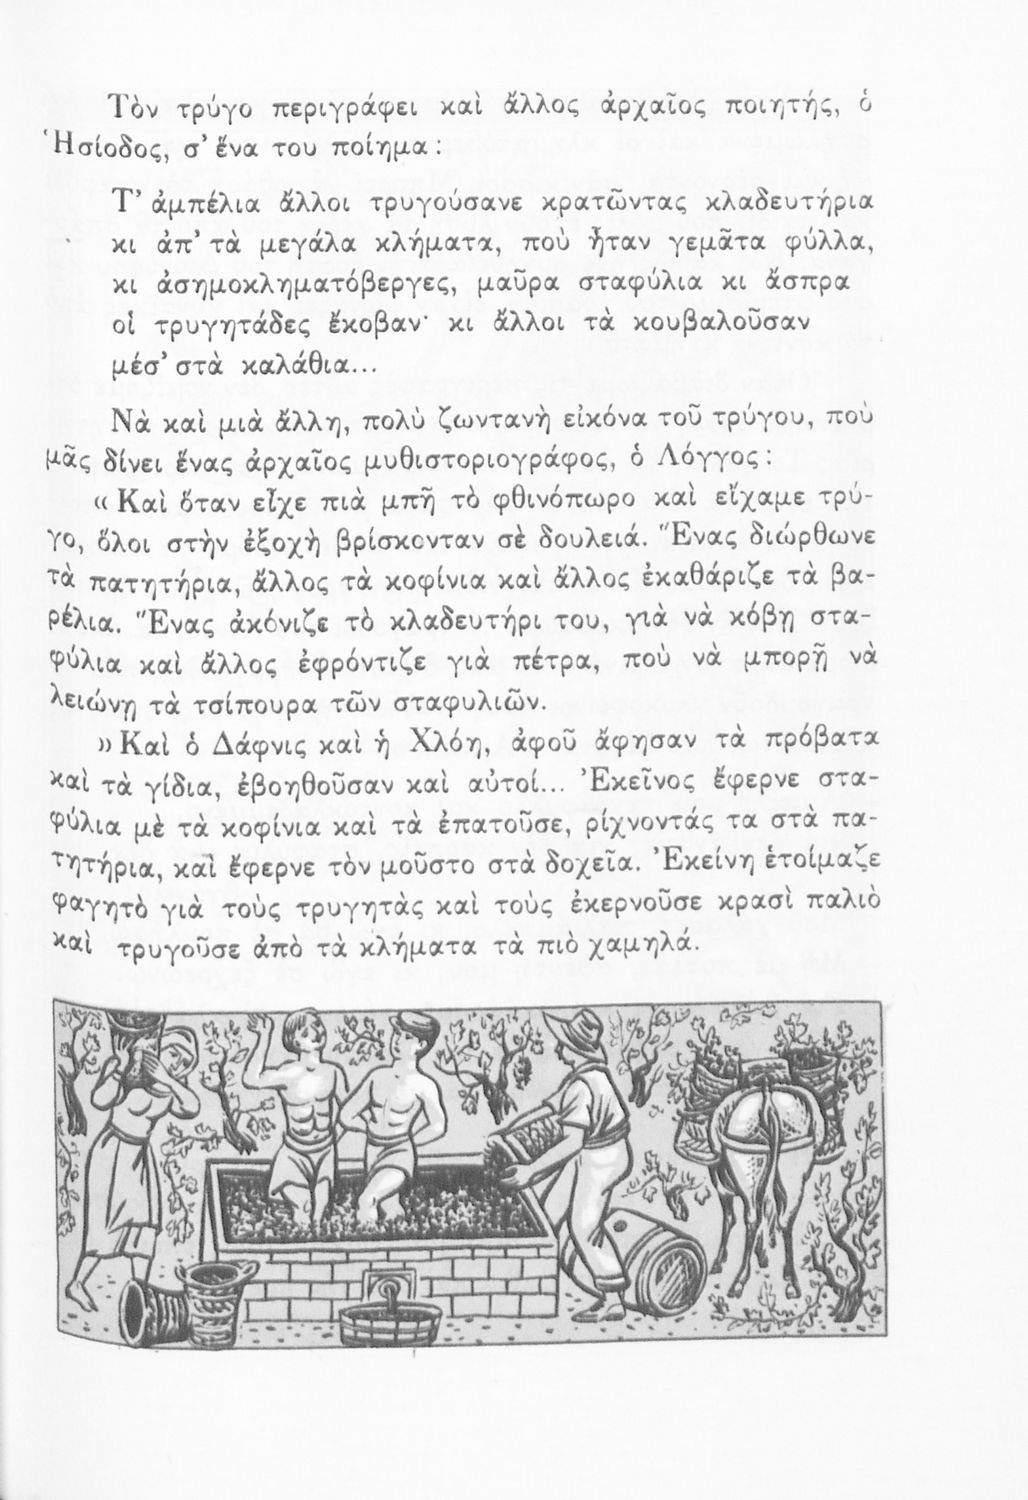 Τὸν τρύγο περιγράφει καὶ ἄλλος ἀρχαῖος ποιητής, ὁ
Ἡσίοδος, σ' ἕνα του ποίημα:
Τ' ἀμπέλια ἄλλοι τρυγούσανε κρατῶντας κλαδευτήρια
κι ἀπ' τὰ μεγάλα κλήματα, ποὺ ἦταν γεμᾶτα φύλλα,
κι ἀσημοκληματόβεργες, μαῦρα σταφύλια κι ἄσπρα
οἱ τρυγητάδες ἔκοβαν· κι ἄλλοι τὰ κουβαλοῦσαν
μέσ' στὰ καλάθια...
Νὰ καὶ μιὰ ἄλλη, πολὺ ζωντανὴ εἰκόνα τοῦ τρύγου, ποὺ
μᾶς δίνει ἕνας ἀρχαῖος μυθιστοριογράφος, ὁ Λόγγος:
« Καὶ ὅταν εἶχε πιὰ μπῆ τὸ φθινόπωρο καὶ εἴχαμε τρύ-
γο, ὅλοι στὴν ἐξοχὴ βρίσκονταν σὲ δουλειά. Ἕνας διώρθωνε
τὰ πατητήρια, ἄλλος τὰ κοφίνια καὶ ἄλλος ἐκαθάριζε τὰ βα-
ρέλια. Ἕνας ἀκόνιζε τὸ κλαδευτήρι του, γιὰ νὰ κόβῃ στα-
φύλια καὶ ἄλλος ἐφρόντιζε γιὰ πέτρα, ποὺ νὰ μπορῇ νὰ
λειώνῃ τὰ τσίπουρα τῶν σταφυλιῶν.
» Καὶ ὁ Δάφνις καὶ ἡ Χλόη, ἀφοῦ ἄφησαν τὰ πρόβατα
καὶ τὰ γίδια, ἐβοηθοῦσαν καὶ αὐτοί... Ἐκεῖνος ἔφερνε στα-
φύλια μὲ τὰ κοφίνια καὶ τὰ ἐπατοῦσε, ρίχνοντάς τα στὰ πα-
τητήρια, καὶ ἔφερνε τὸν μοῦστο στὰ δοχεῖα. Ἐκείνη ἑτοίμαζε
φαγητὸ γιὰ τοὺς τρυγητὰς καὶ τοὺς ἐκερνοῦσε κρασὶ παλιὸ
καὶ τρυγοῦσε ἀπὸ τὰ κλήματα τὰ πιὸ χαμηλά.